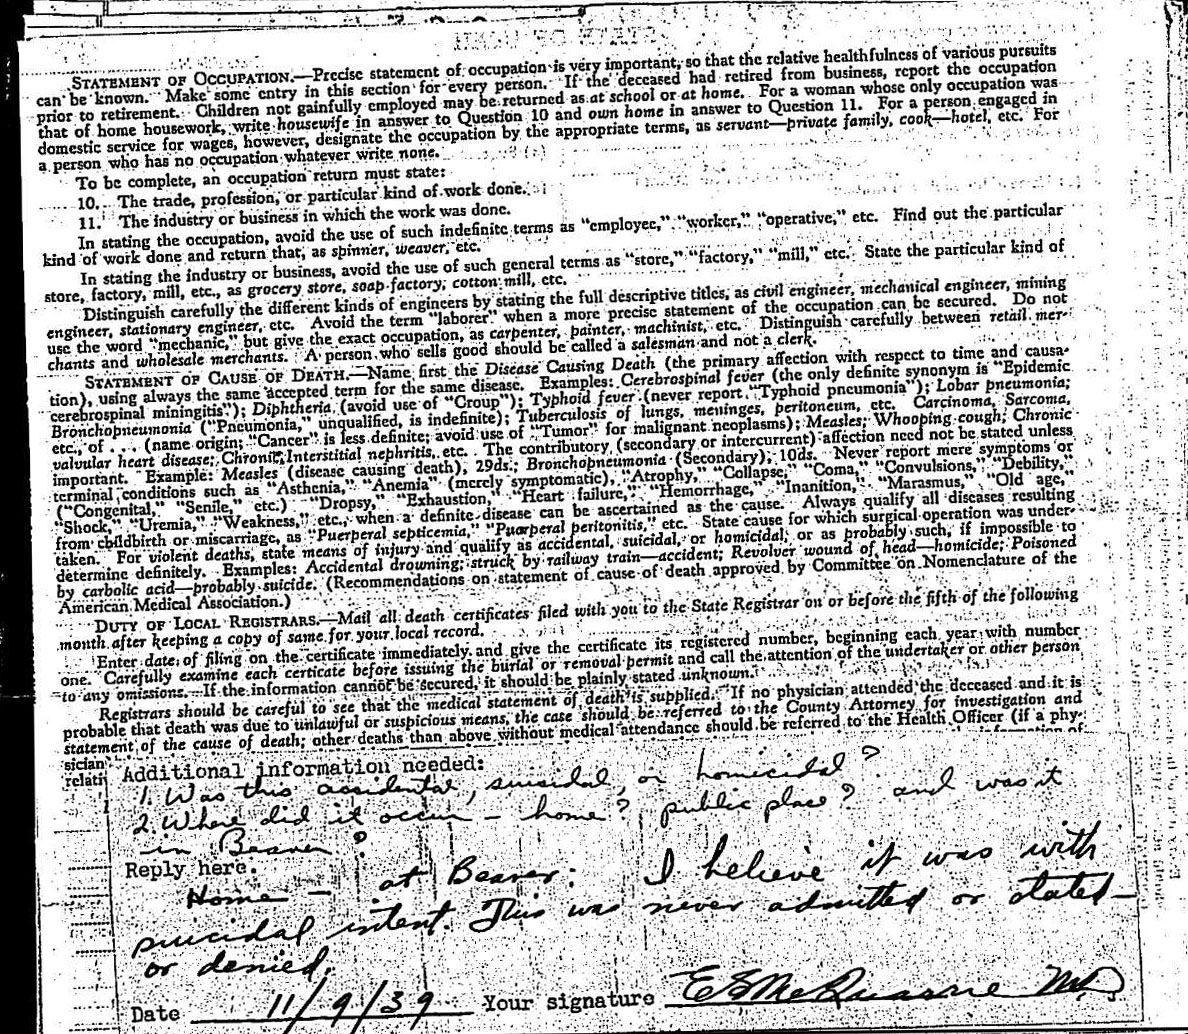 STATEMENT OF OCCUPATION.—Precise statement of occupation is very important, so that the relative healthfulness of various pursuits
can be known. Make some entry in this section for every person. If the deceased had retired from business, report the occupation
prior to retirement. Children not gainfully employed may be returned as at school or at home. For a woman whose only occupation was
that of home housework, write housewife in answer to Question 10 and own home in answer to Question 11. For a person engaged in
domestic service for wages, however, designate the occupation by the appropriate terms, as servant—private family, cook—hotel, etc. For
a person who has no occupation whatever write none.
To be complete, an occupation return must state:
10. The trade, profession, or particular kind of work done.
11. The industry or business in which the work was done.
In stating the occupation, avoid the use of such indefinite terms as "employee," "worker," "operative," etc. Find out the particular
kind of work done and return that, as spinner, weaver, etc.
In stating the industry or business, avoid the use of such general terms as "store," "factory," "mill," etc. State the particular kind of
store, factory, mill, etc., as grocery store, soap factory, cotton mill, etc.
Distinguish carefully the different kinds of engineers by stating the full descriptive titles, as civil engineer, mechanical engineer, mining
engineer, stationary engineer, etc. Avoid the term "laborer" when a more precise statement of the occupation can be secured. Do not
use the word "mechanic," but give the exact occupation, as carpenter, painter, machinist, etc. Distinguish carefully between retail mer-
chants and wholesale merchants. A person who sells good should be called a salesman and not a clerk.
STATEMENT OF CAUSE OF DEATH.—Name first the Disease Causing Death (the primary affection with respect to time and causa-
tion), using always the same accepted term for the same disease. Examples: Cerebrospinal fever (the only definite synonym is "Epidemic
cerebrospinal miningitis"); Diphtheria (avoid use of "Croup"); Typhoid fever (never report "Typhoid pneumonia"); Lobar pneumonia;
Bronchopneumonia ("Pneumonia," unqualified, is indefinite); Tuberculosis of lungs, meninges, peritoneum, etc. Carcinoma, Sarcoma,
etc., of . . . (name origin; "Cancer" is less definite; avoid use of "Tumor" for malignant neoplasms); Measles; Whooping cough; Chronic
valvular heart disease; Chronic Interstitial nephritis, etc. The contributory (secondary or intercurrent) affection need not be stated unless
important. Example: Measles (disease causing death), 29ds.; Bronchopneumonia (Secondary), 10ds. Never report mere symptoms or
terminal conditions such as "Asthenia," "Anemia" (merely symptomatic), "Atrophy," "Collapse," "Coma," "Convulsions," "Debility,"
("Congenital," "Senile," etc.) "Dropsy," "Exhaustion," "Heart failure," "Hemorrhage," "Inanition," "Marasmus," "Old age,"
"Shock," "Uremia," "Weakness," etc., when a definite disease can be ascertained as the cause. Always qualify all diseases resulting
from childbirth or miscarriage, as "Puerperal septicemia," "Puerperal peritonitis," etc. State cause for which surgical operation was under-
taken. For violent deaths, state means of injury and qualify as accidental, suicidal, or homicidal, or as probably such, if impossible to
determine definitely. Examples: Accidental drowning; struck by railway train—accident; Revolver wound of head—homicide; Poisoned
by carbolic acid—probably suicide. (Recommendations on statement of cause of death approved by Committee on Nomenclature of the
American Medical Association.)
DUTY OF LOCAL REGISTRARS.—Mail all death certificates filed with you to the State Registrar on or before the fifth of the following
month after keeping a copy of same for your local record.
Enter date of filing on the certificate immediately and give the certificate its registered number, beginning each year with number
one. Carefully examine each certicate before issuing the burial or removal permit and call the attention of the undertaker or other person
to any omissions. If the information cannot be secured, it should be plainly stated unknown.
Registrars should be careful to see that the medical statement of death is supplied. If no physician attended the deceased and it is
probable that death was due to unlawful or suspicious means, the case should be referred to the County Attorney for investigation and
statement of the cause of death; other deaths than above without medical attendance should be referred to the Health Officer (if a phy-
sician
relati
Additional information needed:
1. Was this accidental, suicidal, or homicidal?
2. Where did it occur – home? public place? and was it
in Beaver?
Reply here.
Home – at Beaver. I believe it was with
suicidal intent. This was never admitted or stated–
or denied.
Date 11/9/39 Your signature E G McQuarrie M.D